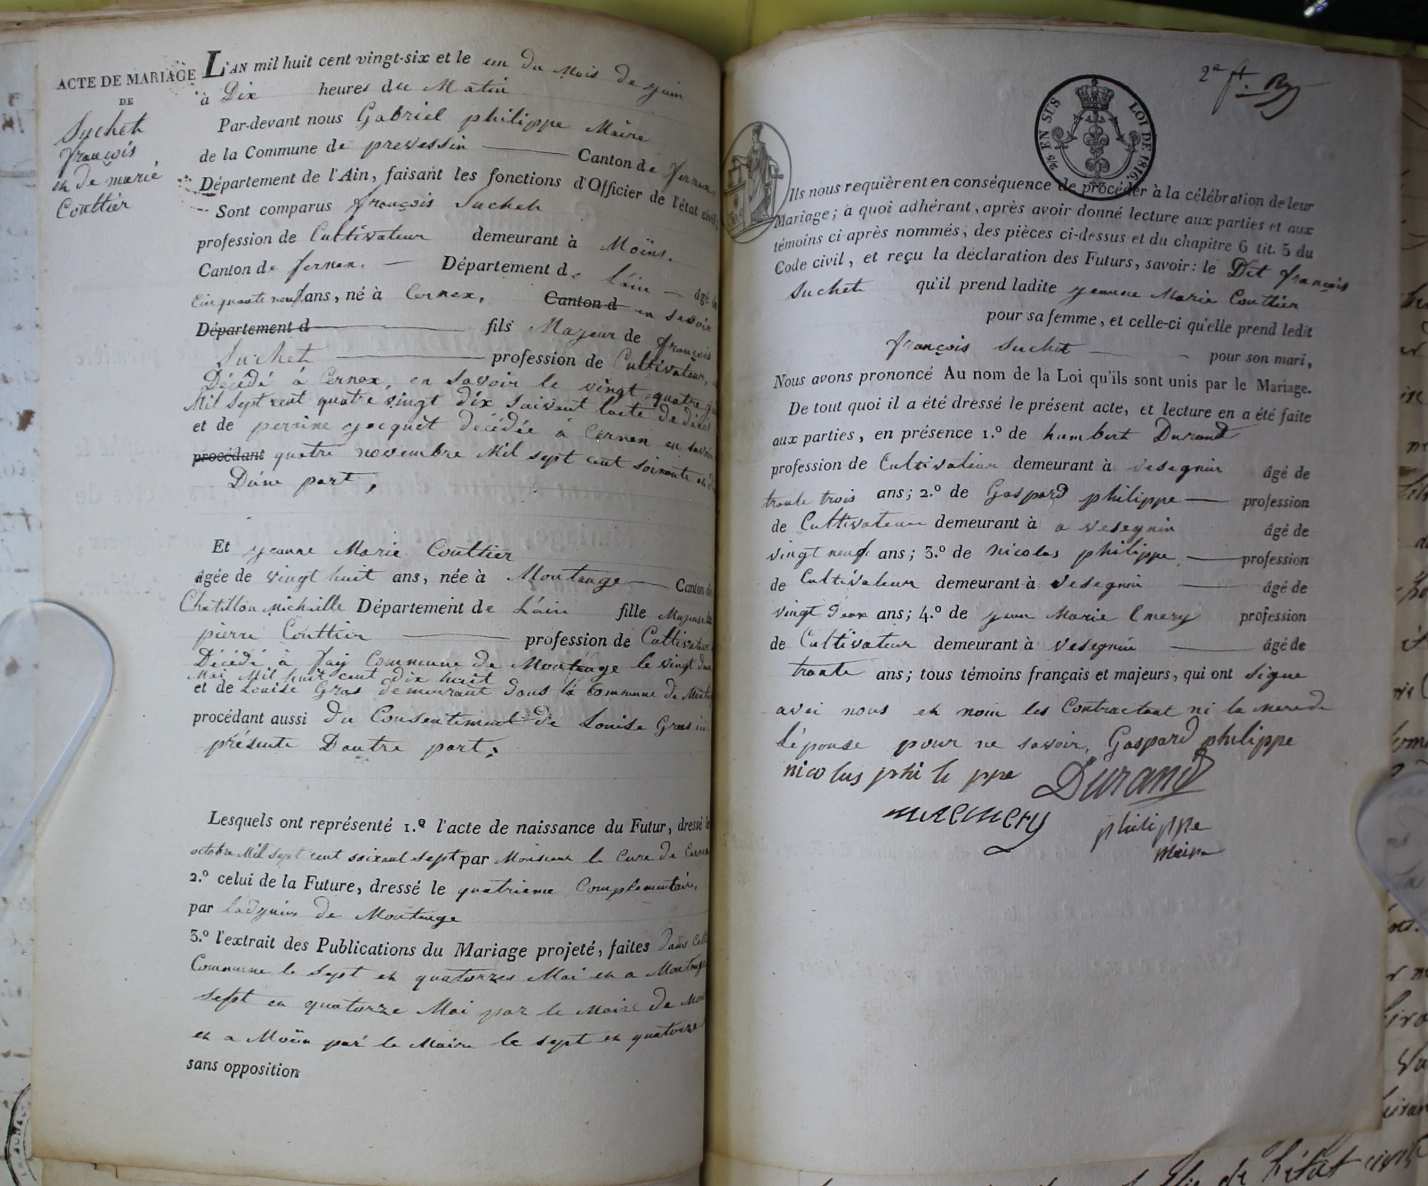 ACTE DE MARIAGE
DE
Suchet
françois
et de marie
Couttier
L'AN mil huit cent vingt-six et le un du mois de juin
à Dix heures du Matin
Par-devant nous Gabriel philippe Maire
de la Commune de prevessin Canton de fernex
Département de l'Ain, faisant les fonctions d'Officier de l'état civil
Sont comparus françois Suchet
profession de Cultivateur demeurant à Moïns.
Canton de fernex. Département de l'ain âgé de
Cinquante neuf ans, né à Cernex, Canton d en Savoie
Département d fils Majeur de françois
Suchet profession de Cultivateur,
Décédé à Cernex, en Savoir le vingt quatre
Mil Sept cent quatre vingt dix Suivant lacte de décès
et de perrine jacquet décédée à Cernex en Savoie
procédant quatre novembre Mil Sept cent Soixante
Dune part,
Et jeanne Marie Couttier
âgée de vingt huit ans, née à Montange Canton de
Chatillon Michaille Département de L'ain fille Majeure de
pierre Couttier profession de Cultivateur
Décédé à fay Commune de Montange le vingt deux
Mai Mil huit cent dix huit
et de Louise Gras demeurant dans la Commune de
procédant aussi Du Consentement de Louise Gras ici
présente Dautre part;
Lesquels ont représenté 1.º l'acte de naissance du Futur, dressé le
octobre Mil Sept cent soixant sept par Monsieur le Cure de Cernex
2.º celui de la Future, dressé le quatrieme Complementaire,
par ladjoint de Montange
3.º l'extrait des Publications du Mariage projeté, faites dans cette
Commune le Sept et quatorzes Mai et a Montange
Sept et quatorze Mai par le Maire de
et a Moën par le Maire le Sept et quatorze
sans opposition
2e ft. Ry
25 EN SUS LOI DE 1816.
Ils nous requièrent en conséquence de procéder à la célébration de leur
Mariage; à quoi adhérant, après avoir donné lecture aux parties et aux
témoins ci après nommés, des pièces ci-dessus et du chapitre 6 tit. 5 du
Code civil, et reçu la déclaration des Futurs, savoir: le Dit françois
Suchet qu'il prend ladite jeanne Marie Couttier
pour sa femme, et celle-ci qu'elle prend ledit
françois Suchet pour son mari,
Nous avons prononcé Au nom de la Loi qu'ils sont unis par le Mariage.
De tout quoi il a été dressé le présent acte, et lecture en a été faite
aux parties, en présence 1.º de humbert Durand
profession de Cultivateur demeurant à vesegnin âgé de
trante trois ans; 2.º de Gaspard philippe profession
de Cultivateur demeurant à a vesegnin âgé de
vingt neuf ans; 3.º de Nicolas philippe profession
de Cultivateur demeurant à vesegnin âgé de
vingt deux ans; 4.º de jean Marie Emery profession
de Cultivateur demeurant à vesegnin âgé de
trante ans; tous témoins français et majeurs, qui ont signe
avei nous et noin les Contractant ni la mere de
Lépouse pour ne Savoir, Gaspard philippe
nicolas phi li ppe Durand
mremery philippe
maire